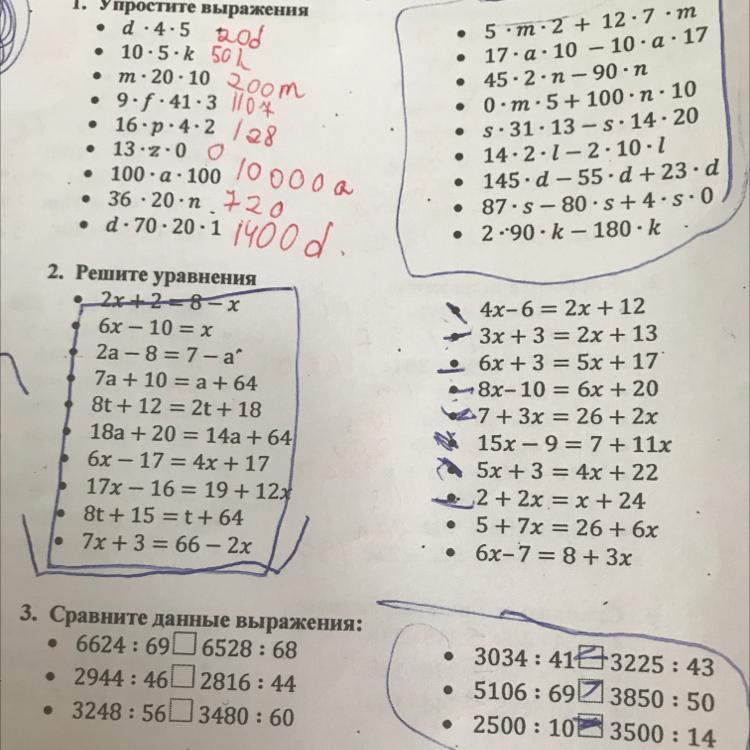 1. Упростите выражения
d · 4 · 5 20d
10 · 5 · k 50k
m · 20 · 10 200m
9 · f · 41 · 3 1107
16 · p · 4 · 2 128
13 · z · 0 0
100 · a · 100 10000a
36 · 20 · n 720
d · 70 · 20 · 1 1400d.
5 · m · 2 + 12 · 7 · m
17 · a · 10 − 10 · a · 17
45 · 2 · n − 90 · n
0 · m · 5 + 100 · n · 10
s · 31 · 13 − s · 14 · 20
14 · 2 · l − 2 · 10 · l
145 · d − 55 · d + 23 · d
87 · s − 80 · s + 4 · s · 0
2 · 90 · k − 180 · k
2. Решите уравнения
2x + 2 = 8 − x
6x − 10 = x
2a − 8 = 7 − a
7a + 10 = a + 64
8t + 12 = 2t + 18
18a + 20 = 14a + 64
6x − 17 = 4x + 17
17x − 16 = 19 + 12x
8t + 15 = t + 64
7x + 3 = 66 − 2x
4x− 6 = 2x + 12
3x + 3 = 2x + 13
6x + 3 = 5x + 17
8x− 10 = 6x + 20
7 + 3x = 26 + 2x
15x − 9 = 7 + 11x
5x + 3 = 4x + 22
2 + 2x = x + 24
5 + 7x = 26 + 6x
6x− 7 = 8 + 3x
3. Сравните данные выражения:
6624 : 69 □ 6528 : 68
2944 : 46 □ 2816 : 44
3248 : 56 □ 3480 : 60
3034 : 41 □ 3225 : 43
5106 : 69 □ 3850 : 50
2500 : 10 □ 3500 : 14